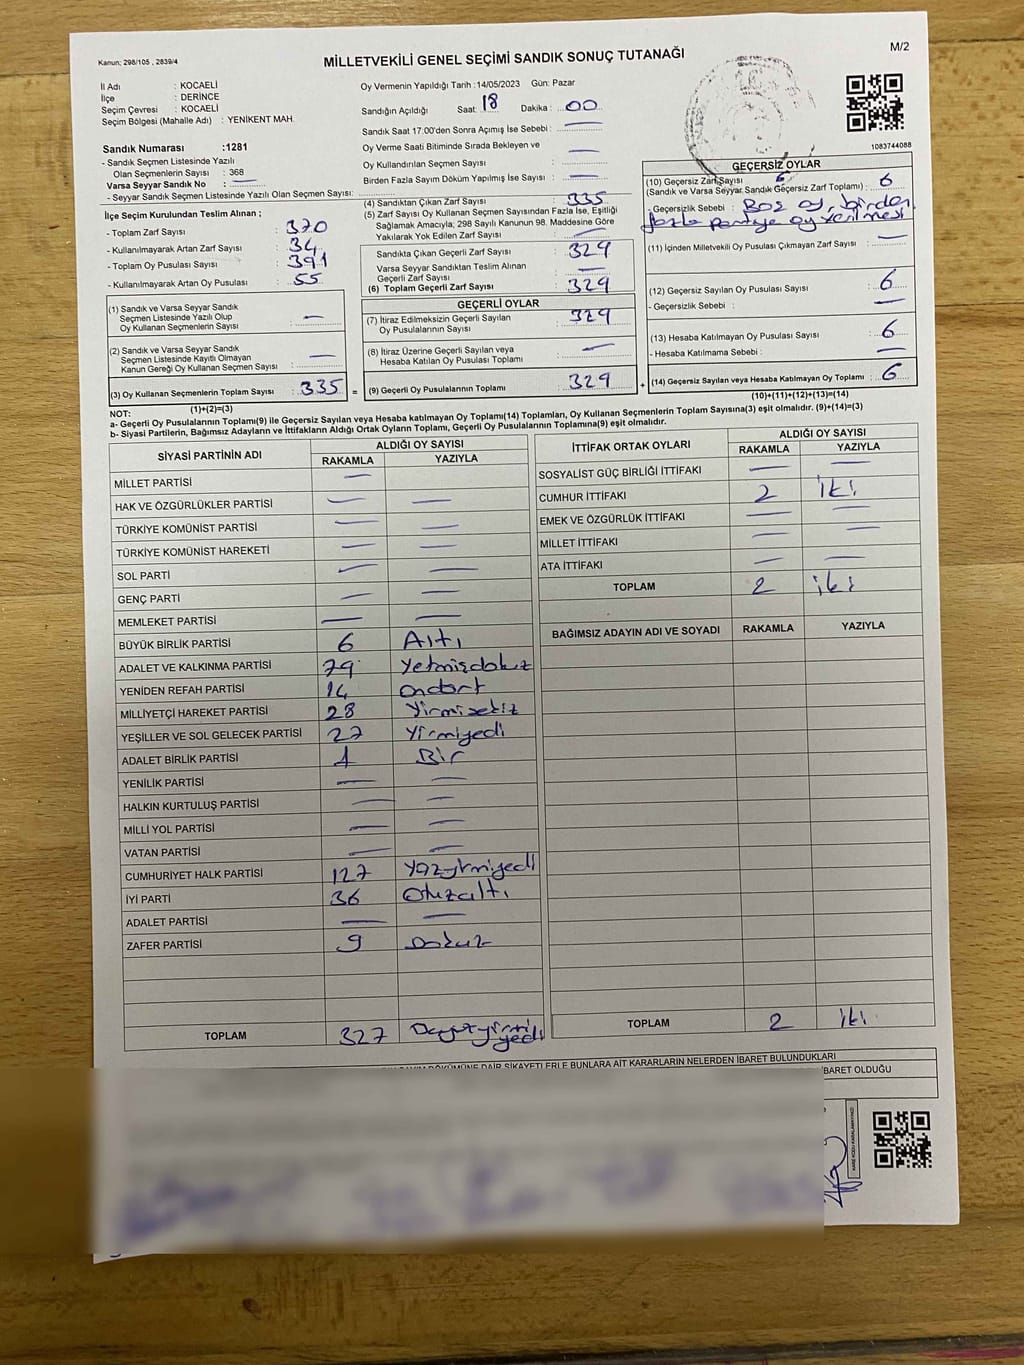 Kanun; 298/105 , 2839/4
MİLLETVEKİLİ GENEL SEÇİMİ SANDIK SONUÇ TUTANAĞI
M/2
İl Adı : KOCAELİ
İlçe : DERİNCE
Seçim Çevresi : KOCAELİ
Seçim Bölgesi (Mahalle Adı) : YENİKENT MAH.
Oy Vermenin Yapıldığı Tarih :14/05/2023 Gün: Pazar
Sandığın Açıldığı Saat: 18 Dakika : 00
Sandık Saat 17:00'den Sonra Açımış İse Sebebi : —
Oy Verme Saati Bitiminde Sırada Bekleyen ve
Oy Kullandırılan Seçmen Sayısı : —
Birden Fazla Sayım Döküm Yapılmış İse Sayısı : —
1083744088
Sandık Numarası :1281
- Sandık Seçmen Listesinde Yazılı
Olan Seçmenlerin Sayısı : 368
Varsa Seyyar Sandık No : —
- Seyyar Sandık Seçmen Listesinde Yazılı Olan Seçmen Sayısı:
İlçe Seçim Kurulundan Teslim Alınan ;
- Toplam Zarf Sayısı : 370
- Kullanılmayarak Artan Zarf Sayısı : 34
- Toplam Oy Pusulası Sayısı : 391
- Kullanılmayarak Artan Oy Pusulası : 55
(1) Sandık ve Varsa Seyyar Sandık
Seçmen Listesinde Yazılı Olup
Oy Kullanan Seçmenlerin Sayısı : —
(2) Sandık ve Varsa Seyyar Sandık
Seçmen Listesinde Kayıtlı Olmayan
Kanun Gereği Oy Kullanan Seçmen Sayısı : —
(3) Oy Kullanan Seçmenlerin Toplam Sayısı : 335 =
(1)+(2)=(3)
(4) Sandıktan Çıkan Zarf Sayısı : 335
(5) Zarf Sayısı Oy Kullanan Seçmen Sayısından Fazla İse, Eşitliği
Sağlamak Amacıyla, 298 Sayılı Kanunun 98. Maddesine Göre
Yakılarak Yok Edilen Zarf Sayısı : —
Sandıkta Çıkan Geçerli Zarf Sayısı : 329
Varsa Seyyar Sandıktan Teslim Alınan
Geçerli Zarf Sayısı : —
(6) Toplam Geçerli Zarf Sayısı : 329
GEÇERLİ OYLAR
(7) İtiraz Edilmeksizin Geçerli Sayılan
Oy Pusulalarının Sayısı : 329
(8) İtiraz Üzerine Geçerli Sayılan veya
Hesaba Katılan Oy Pusulası Toplamı : —
(9) Geçerli Oy Pusulalarının Toplamı : 329 +
GEÇERSİZ OYLAR
(10) Geçersiz Zarf Sayısı 6 : 6
(Sandık ve Varsa Seyyar Sandık Geçersiz Zarf Toplamı)
- Geçersizlik Sebebi : Boş oy, birden
fazla partiye oy verilmesi
(11) İçinden Milletvekili Oy Pusulası Çıkmayan Zarf Sayısı : —
(12) Geçersiz Sayılan Oy Pusulası Sayısı : 6
- Geçersizlik Sebebi : —
(13) Hesaba Katılmayan Oy Pusulası Sayısı : 6
- Hesaba Katılmama Sebebi : —
(14) Geçersiz Sayılan veya Hesaba Katılmayan Oy Toplamı : 6
(10)+(11)+(12)+(13)=(14)
NOT:
a- Geçerli Oy Pusulalarının Toplamı(9) ile Geçersiz Sayılan veya Hesaba katılmayan Oy Toplamı(14) Toplamları, Oy Kullanan Seçmenlerin Toplam Sayısına(3) eşit olmalıdır. (9)+(14)=(3)
b- Siyasi Partilerin, Bağımsız Adayların ve İttifakların Aldığı Ortak Oyların Toplamı, Geçerli Oy Pusulalarının Toplamına(9) eşit olmalıdır.
SİYASİ PARTİNİN ADI ALDIĞI OY SAYISI
RAKAMLA YAZIYLA
MİLLET PARTİSİ —
HAK VE ÖZGÜRLÜKLER PARTİSİ — —
TÜRKİYE KOMÜNİST PARTİSİ — —
TÜRKİYE KOMÜNİST HAREKETİ — —
SOL PARTİ — —
GENÇ PARTİ — —
MEMLEKET PARTİSİ — —
BÜYÜK BİRLİK PARTİSİ 6 Altı
ADALET VE KALKINMA PARTİSİ 79 Yetmişdokuz
YENİDEN REFAH PARTİSİ 14 ondört
MİLLİYETÇİ HAREKET PARTİSİ 28 Yirmisekiz
YEŞİLLER VE SOL GELECEK PARTİSİ 27 Yirmiyedi
ADALET BİRLİK PARTİSİ 1 Bir
YENİLİK PARTİSİ — —
HALKIN KURTULUŞ PARTİSİ — —
MİLLİ YOL PARTİSİ — —
VATAN PARTİSİ — —
CUMHURİYET HALK PARTİSİ 127 Yüzyirmiyedi
İYİ PARTİ 36 Otuzaltı
ADALET PARTİSİ — —
ZAFER PARTİSİ 9 Dokuz
TOPLAM 327
İTTİFAK ORTAK OYLARI ALDIĞI OY SAYISI
RAKAMLA YAZIYLA
SOSYALİST GÜÇ BİRLİĞİ İTTİFAKI — —
CUMHUR İTTİFAKI 2 İki
EMEK VE ÖZGÜRLÜK İTTİFAKI — —
MİLLET İTTİFAKI — —
ATA İTTİFAKI — —
TOPLAM 2 iki
BAĞIMSIZ ADAYIN ADI VE SOYADI RAKAMLA YAZIYLA
TOPLAM 2 iki
DÖKÜMÜNE DAİR ŞİKAYETLERLE BUNLARA AİT KARARLARIN NELERDEN İBARET BULUNDUKLARI
İBARET OLDUĞU
KARE KODU KARALAMAYINIZ!